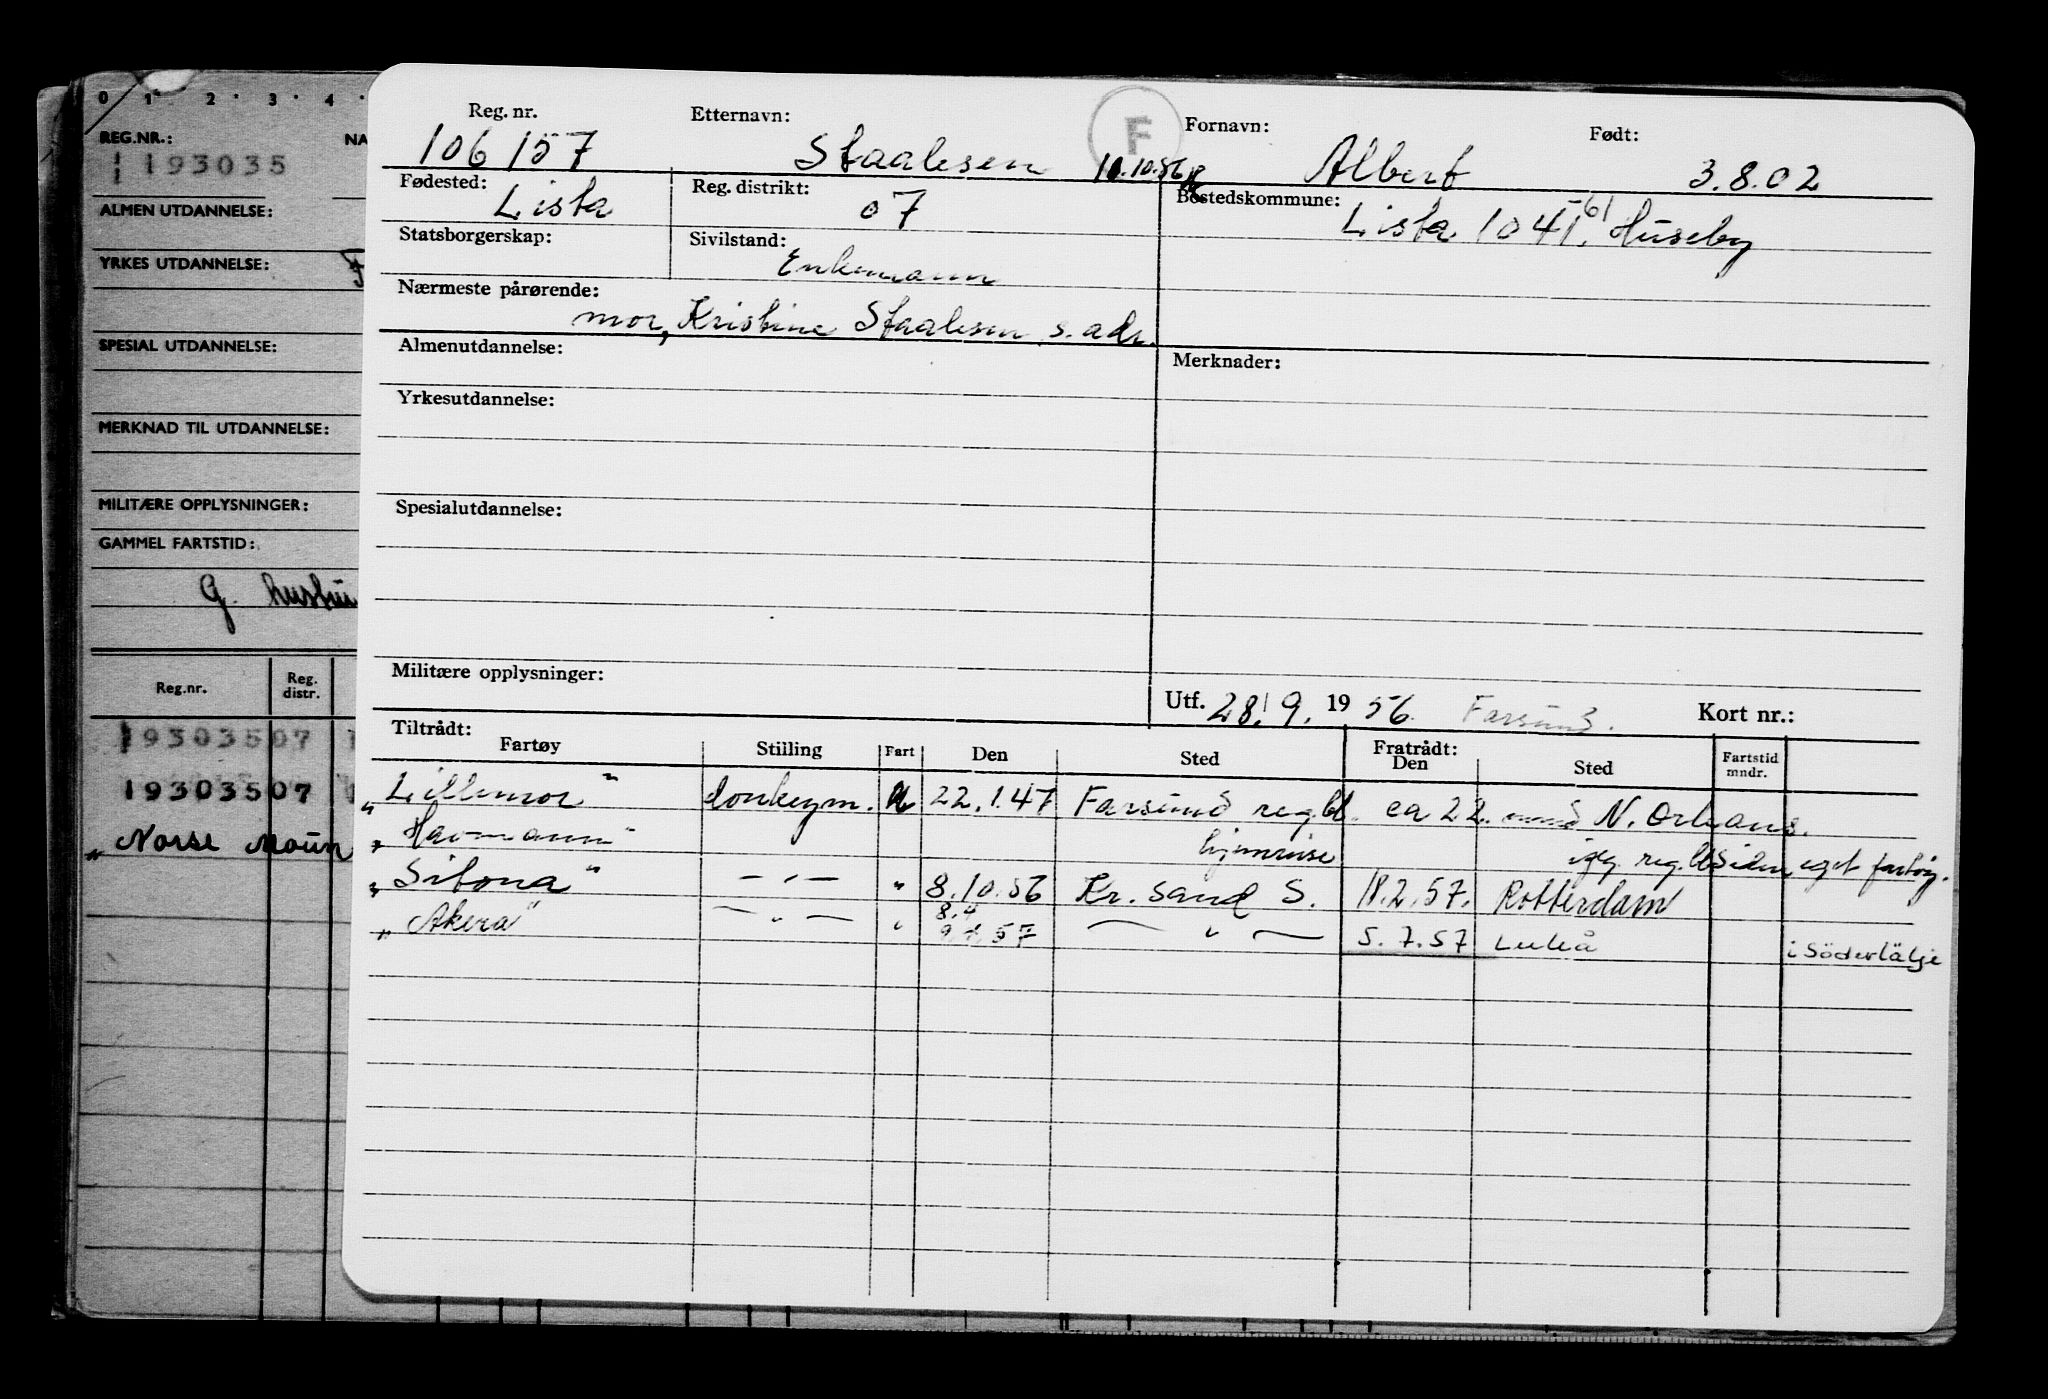 0 1 2 3 4
REG.NR.:
NA
193035
ALMEN UTDANNELSE:
YRKES UTDANNELSE:
SPESIAL UTDANNELSE:
MERKNAD TIL UTDANNELSE:
MILITÆRE OPPLYSNINGER:
GAMMEL FARTSTID:
Reg.nr. Reg. distr.
193035 07
193035 07
"Norse Moun
Reg. nr. Etternavn: F Fornavn: Født:
106157 Staalesen 10.10.56 Albert 3.8.02
Fødested: Reg. distrikt: Bostedskommune:
Lista 07 Lista 1041. Huseby
Statsborgerskap: Sivilstand:
Enkemann
Nærmeste pårørende:
mor, Kristine Staalesen s. adr.
Almenutdannelse: Merknader:
Yrkesutdannelse:
Spesialutdannelse:
Militære opplysninger:
Utf. 28.9. 1956. Farsund. Kort nr.:
Tiltrådt: Fratrådt:
Fartøy Stilling Fart Den Sted Den Sted Fartstid mndr.
"Lillemor" donkeym. 22.1.47 Farsund reg.bl. ca 22. N. Orleans.
"Havmann" hjemreise reg. eget fartøy.
"Sitona" - " - " 8.10.56 Kr. sand S. 18.2.57. Rotterdam
"Akera" - " - " 8.4 57 - " - 5.7.57 Luleå i Södertälje